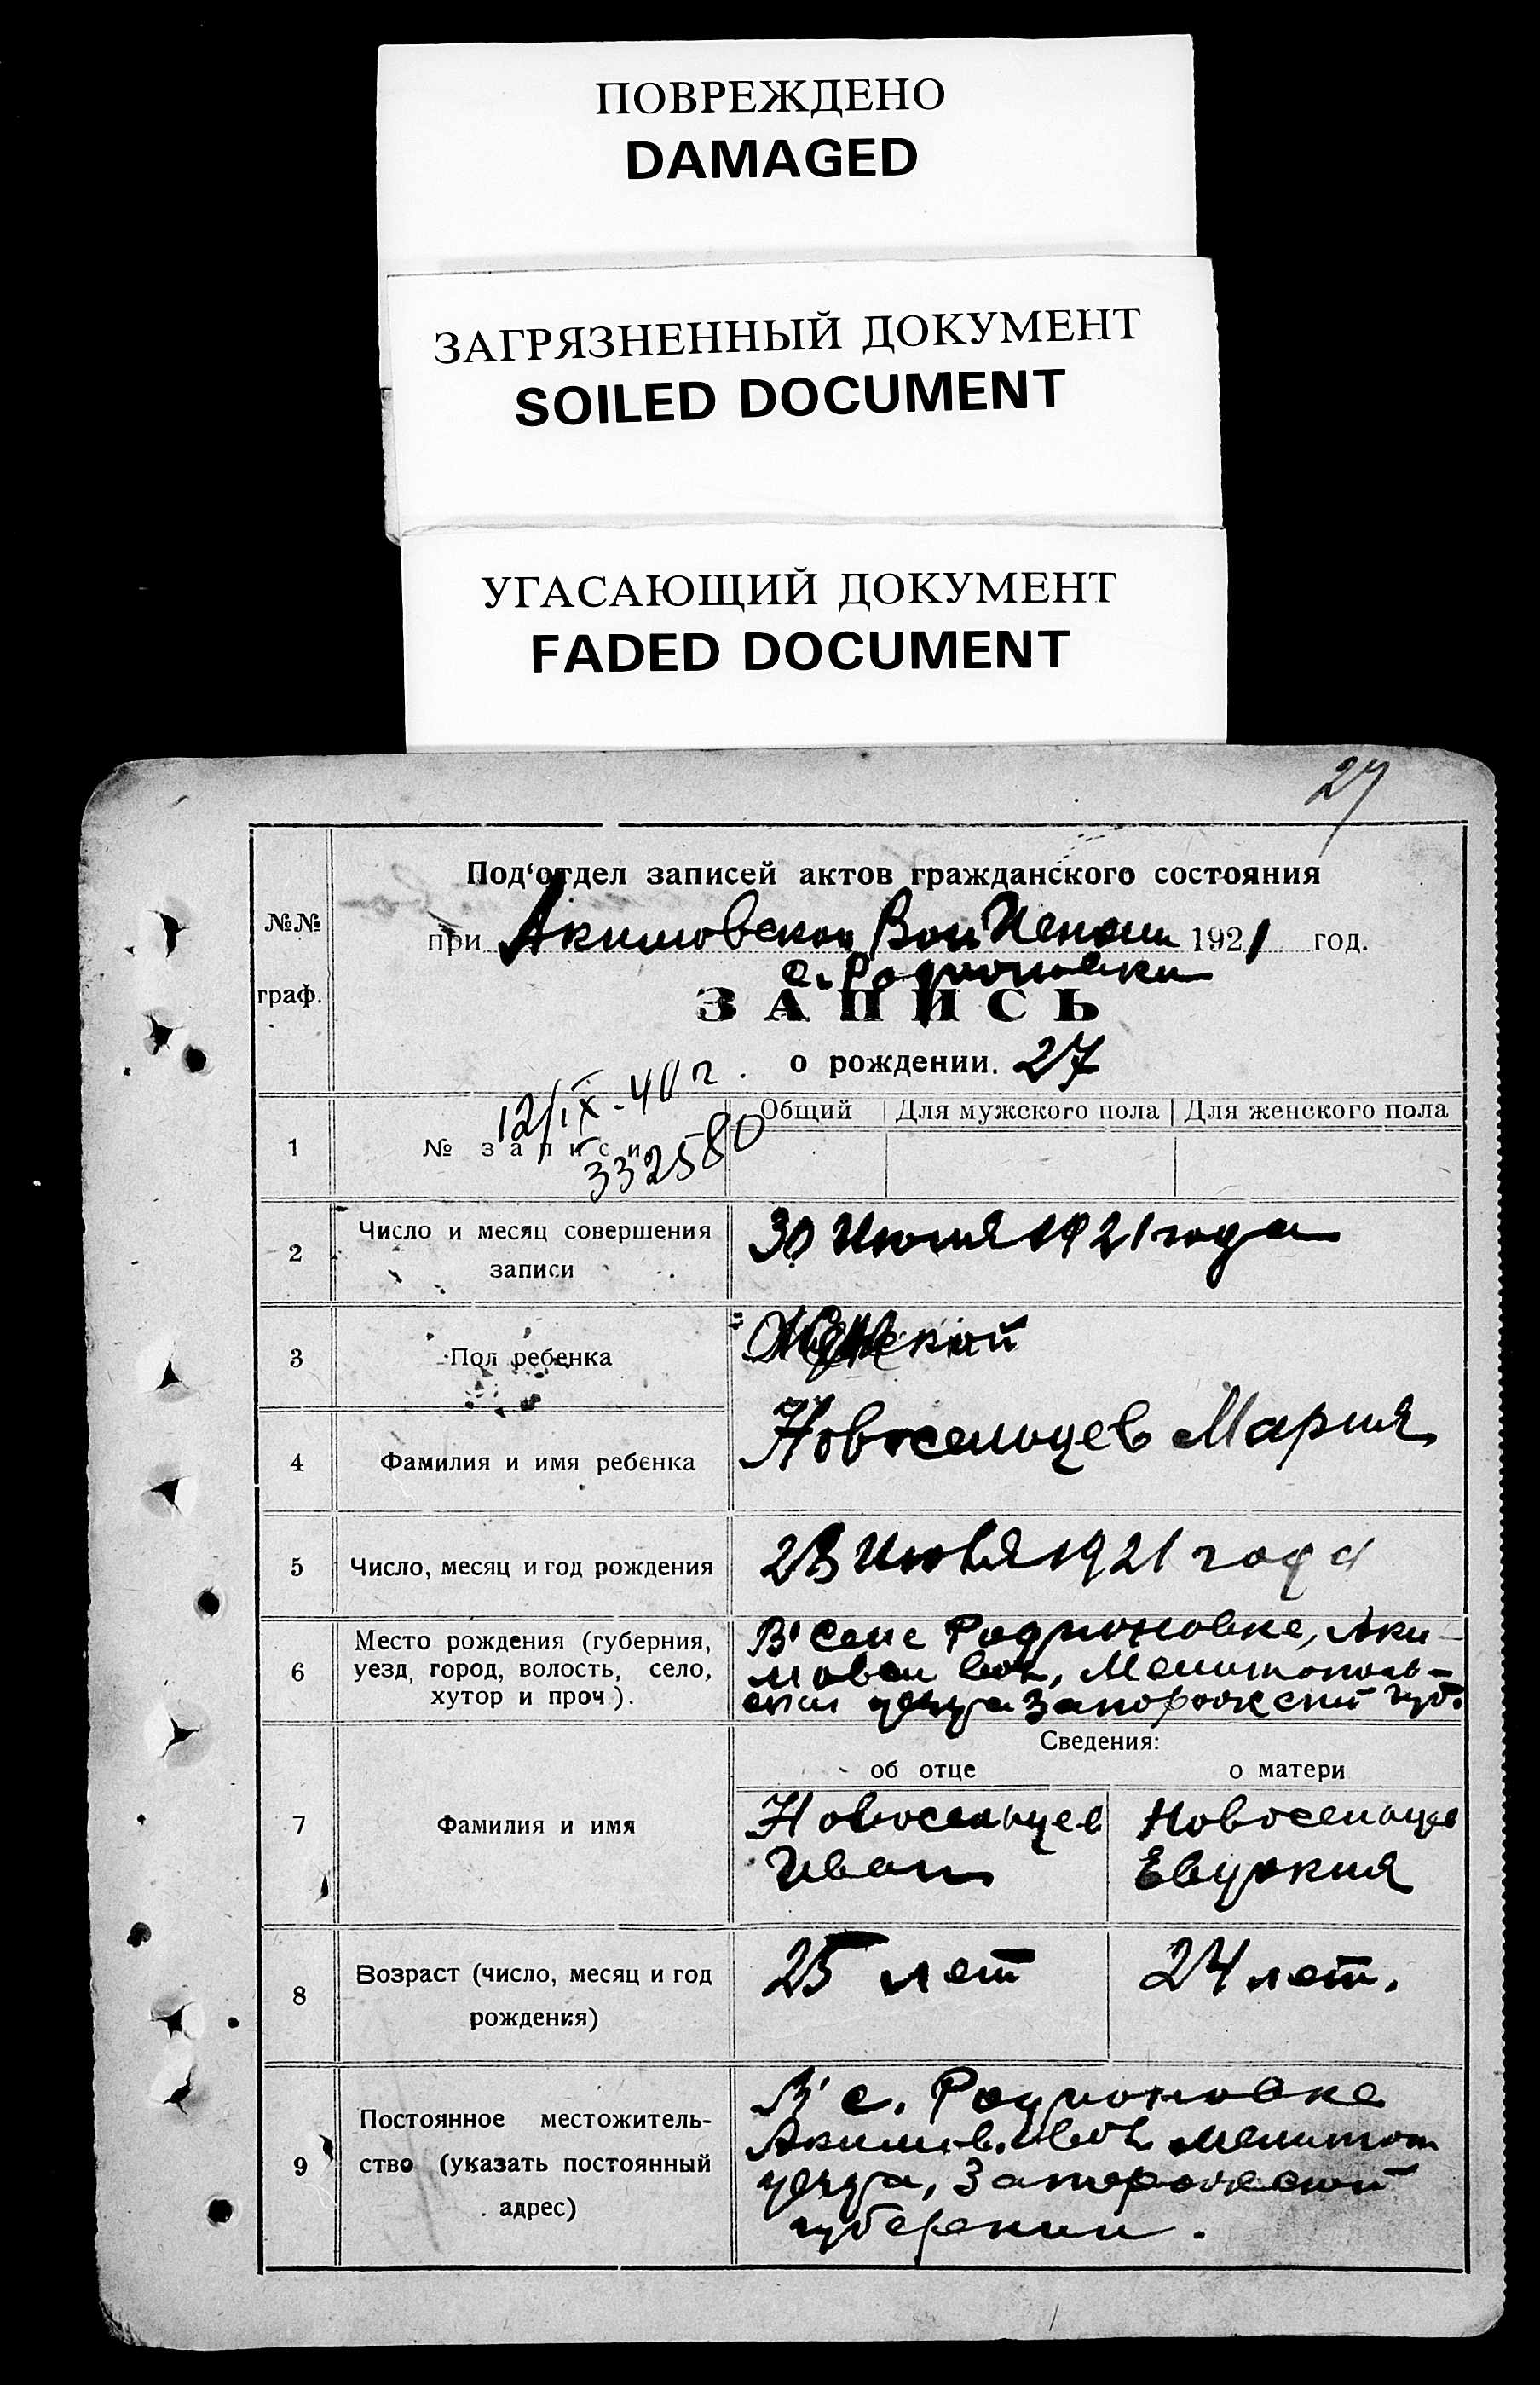 ПОВРЕЖДЕНО
DAMAGED
ЗАГРЯЗНЕННЫЙ ДОКУМЕНТ
SOILED DOCUMENT
УГАСАЮЩИЙ ДОКУМЕНТ
FADED DOCUMENT
27
Под'отдел записей актов гражданского состояния
№№
граф.
при Акимовском 1921 год.
с. Родионовки
ЗАПИСЬ
о рождении. 27
12/IX-40 г.
332580
Общий Для мужского пола Для женского пола
1 № записи
2 Число и месяц совершения записи
30 Июня 1921 года
3 Пол ребенка
Женской
4 Фамилия и имя ребенка
Новосельцев Мария
5 Число, месяц и год рождения
23 Июня 1921 года
6 Место рождения (губерния,
уезд, город, волость, село,
хутор и проч.).
В селе Родионовке, Аки-
мовск вол, Мелитополь-
ского уезда Запорожской губ.
Сведения:
об отце о матери
7 Фамилия и имя
Новосельцев Новосельцев
Иван Евдокия
8 Возраст (число, месяц и год
рождения)
25 лет 24 лет.
9 Постоянное местожитель-
ство (указать постоянный
адрес)
В с. Родионовке
Акимов. вол. Мелитоп
уезда, Запорожской
губернии.